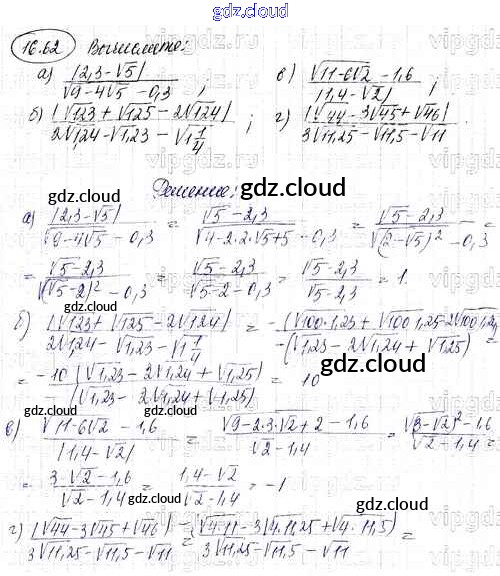 gdz.cloud
16.62 Вычислите:
а) |2,3-√5| / (√(9-4√5) - 0,3) ; в) (√(11-6√2) - 1,6) / |1,4-√2| ;
б) |√123 + √125 - 2√124| / (2√1,24 - √1,23 - √(1 1/4)) ; г) |√44 - 3√45 + √46| / (3√11,25 - √11,5 - √11) .
Решение: gdz.cloud
а) |2,3-√5| / (√(9-4√5) - 0,3) = (√5-2,3) / (√(4-2·2·√5+5) - 0,3) = (√5-2,3) / (√((2-√5)²) - 0,3) =
= (√5-2,3) / (√((√5-2)²) - 0,3) = (√5-2,3) / (√5-2-0,3) = (√5-2,3) / (√5-2,3) = 1.
б) |√123 + √125 - 2√124| / (2√1,24 - √1,23 - √(1 1/4)) = -(√100·1,23 + √100·1,25 - 2√100·1,24) / -(√1,23 - 2√1,24 + √1,25) =
= -10 (√1,23 - 2√1,24 + √1,25) / -(√1,23 - 2√1,24 + √1,25) = 10
в) (√(11-6√2) - 1,6) / |1,4-√2| = (√(9-2·3·√2+2) - 1,6) / (√2-1,4) = (√((3-√2)²) - 1,6) / (√2-1,4) =
= (3-√2-1,6) / (√2-1,4) = (1,4-√2) / (√2-1,4) = -1
г) |√44 - 3√45 + √46| / (3√11,25 - √11,5 - √11) = -(√4·11 - 3√4·11,25 + √4·11,5) / (3√11,25 - √11,5 - √11) =